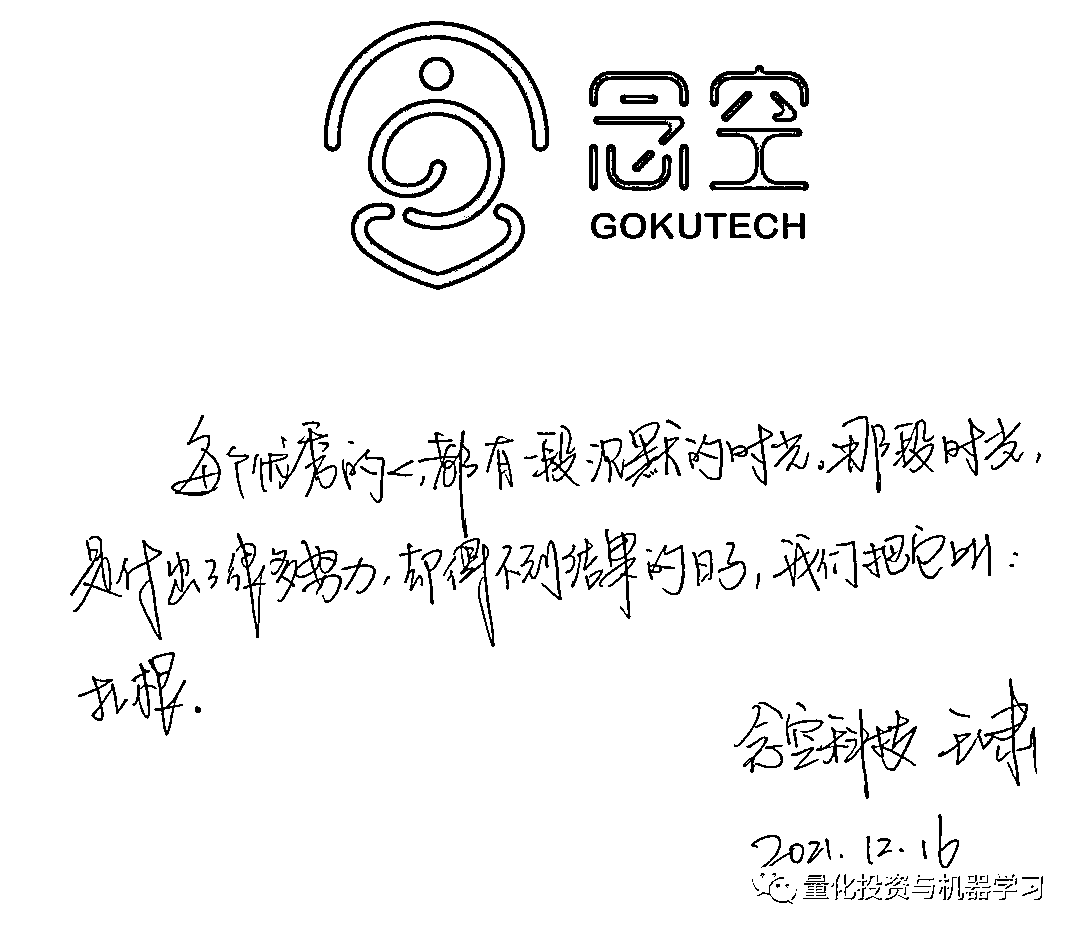 念空
GOKUTECH
每个优秀的人，都有一段沉默的时光。那段时光，
是付出了很多努力，却得不到结果的日子，我们把它叫：
扎根.
念空科技 王啸
2021.12.16
量化投资与机器学习